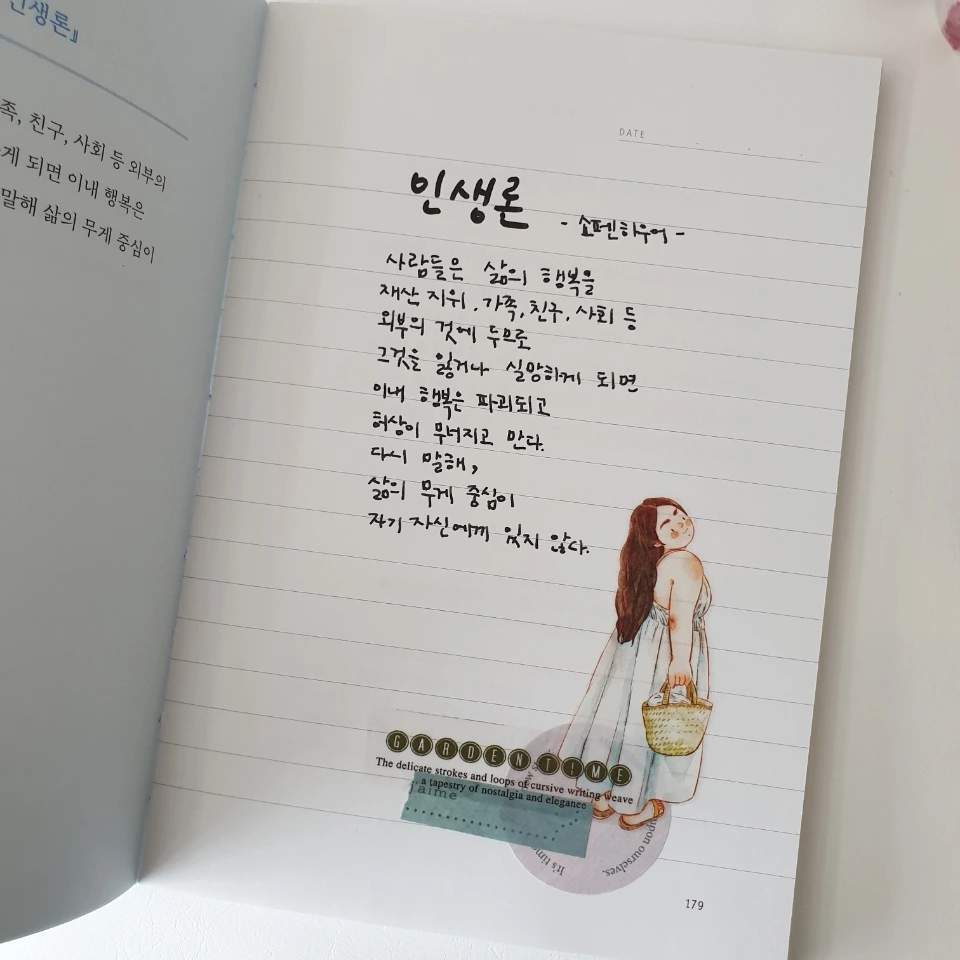 인생론』
족, 친구, 사회 등 외부의
게 되면 이내 행복은
말해 삶의 무게 중심이
DATE
인생론
- 쇼펜하우어 -
사람들은 삶의 행복을
재산 지위, 가족, 친구, 사회 등
외부의 것에 두므로
그것을 잃거나 실망하게 되면
이내 행복은 파괴되고
허상이 무너지고 만다.
다시 말해,
삶의 무게 중심이
자기 자신에게 있지 않다.
GARDEN TIME
The delicate strokes and loops of cursive writing weave
a tapestry of nostalgia and elegance
J'aime
It's time
upon ourselves.
179